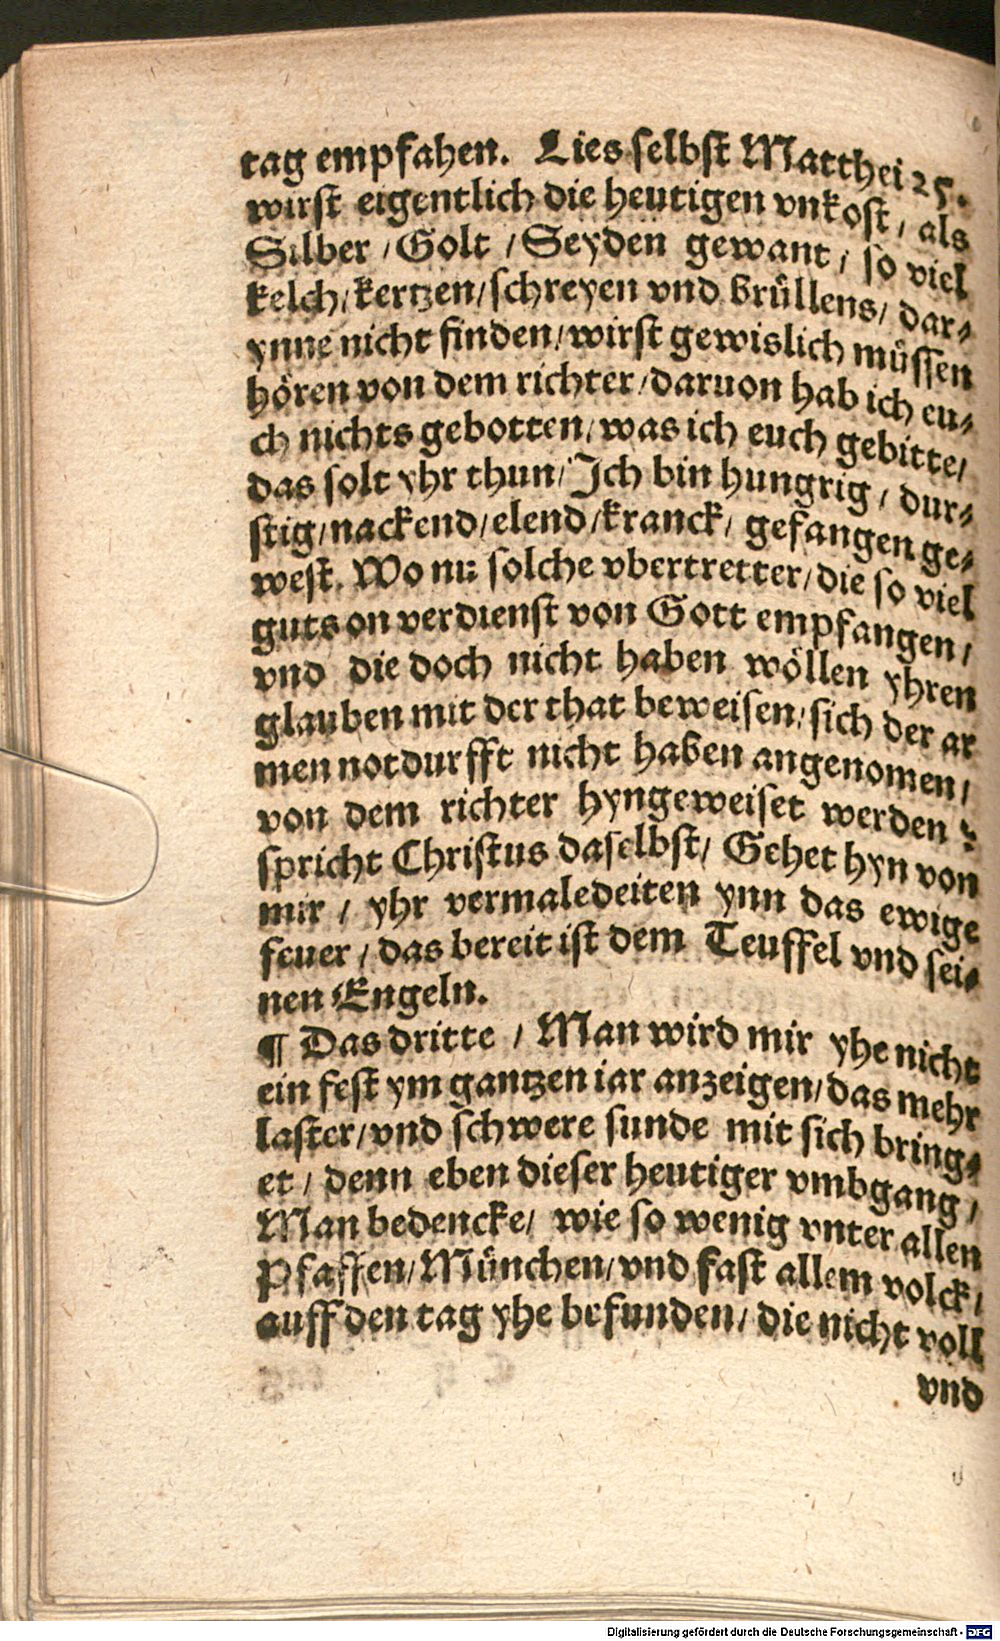 tag empfahen. Lies selbst Matthei 25.
wirst eigentlich die heutigen vnkost / als
Silber / Golt / Seyden gewant / so viel
kelch / kertzen / schreyen vnd brüllens / dar-
ynne nicht finden / wirst gewislich müssen
hören von dem richter / daruon hab ich eu-
ch nichts gebotten / was ich euch gebitte /
das solt yhr thun / Ich bin hungrig / dur-
stig / nackend / elend / kranck / gefangen ge-
west. Wo nu solche vbertretter / die so viel
guts on verdienst von Gott empfangen /
vnd die doch nicht haben wöllen yhren
glauben mit der that beweisen / sich der ar
men notdurfft nicht haben angenomen /
von dem richter hyngeweiset werden ?
spricht Christus daselbst / Gehet hyn von
mir / yhr vermaledeiten ynn das ewige
feuer / das bereit ist dem Teuffel vnd sei-
nen Engeln.
¶ Das dritte / Man wird mir yhe nicht
ein fest ym gantzen iar anzeigen / das mehr
laster / vnd schwere sunde mit sich bring-
et / denn eben dieser heutiger vmbgang /
Man bedencke / wie so wenig vnter allen
Pfaffen / München / vnd fast allem volck /
auff den tag yhe befunden / die nicht voll
vnd
Digitalisierung gefördert durch die Deutsche Forschungsgemeinschaft - DFG